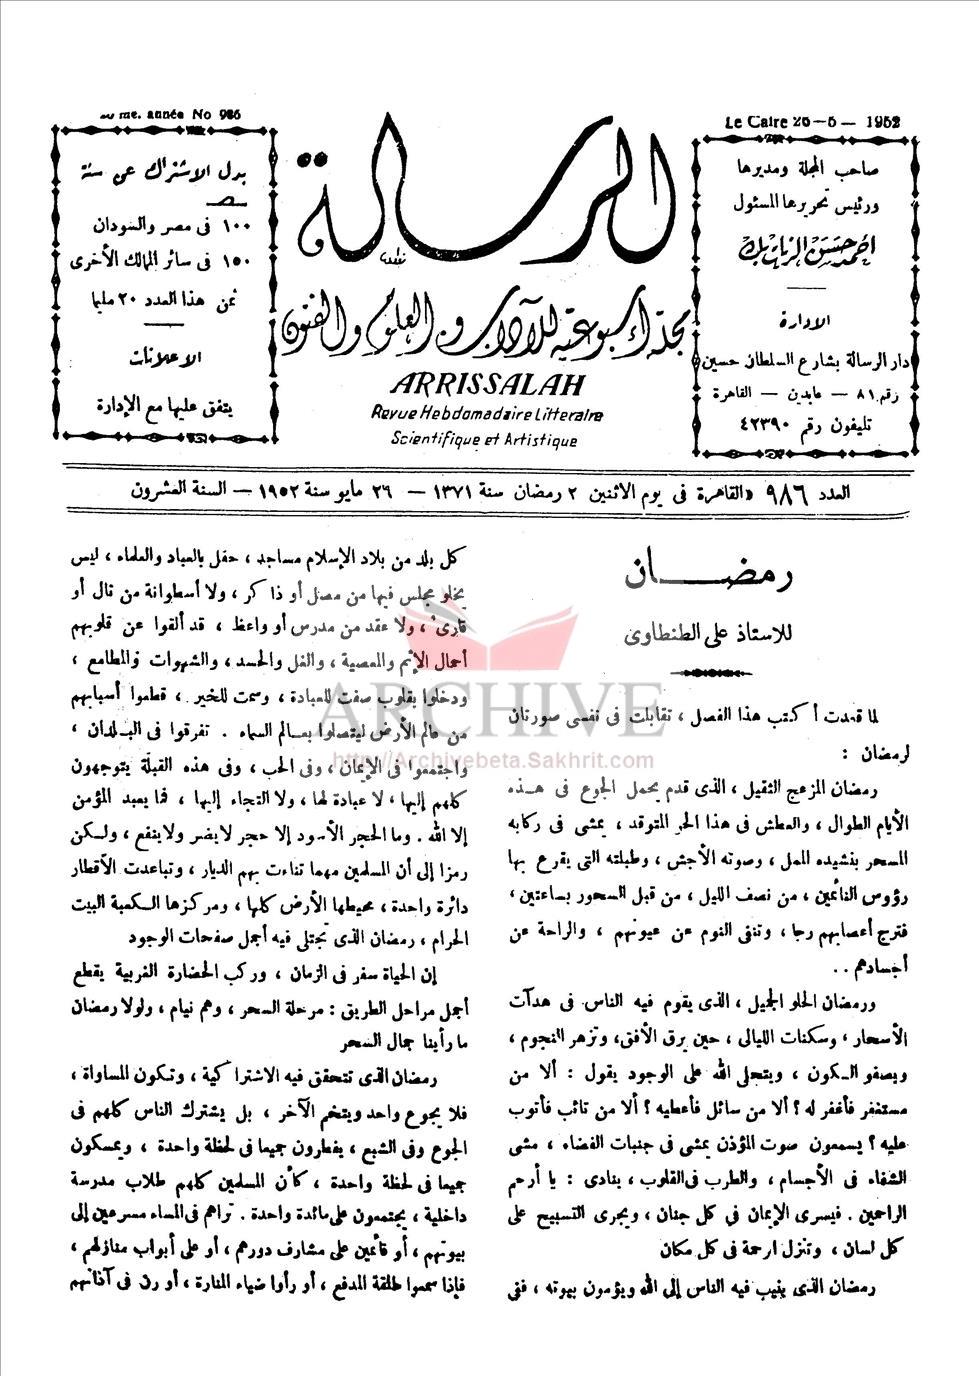 20 me. année No 986
Le Caire 26 — 5 — 1952
صاحب المجلة ومديرها
ورئيس تحريرها المسئول
احمد حسن الزيات بك
الإدارة
دار الرسالة بشارع السلطان حسين
رقم ٨١ — عابدين — القاهرة
تليفون رقم ٤٢٣٩٠
الرسالة
مجلة أسبوعية للآداب والعلوم والفنون
ARRISSALAH
Revue Hebdomadaire Litteraire
Scientifique et Artistique
بدل الاشتراك عن سنة
١٠٠ فى مصر والسودان
١٥٠ فى سائر الممالك الأخرى
ثمن هذا العدد ٢٠ مليما
الاعلانات
يتفق عليها مع الإدارة
العدد ٩٨٦ «القاهرة فى يوم الاثنين ٢ رمضان سنة ١٣٧١ — ٢٦ مايو سنة ١٩٥٢ — السنة العشرون
رمضان
للاستاذ على الطنطاوى
لما قعدت أكتب هذا الفصل ، تقابلت فى نفسى صورتان
لرمضان :
رمضان المزعج الثقيل ، الذى قدم يحمل الجوع فى هذه
الأيام الطوال ، والعطش فى هذا الحر المتوقد ، يمشى فى ركابه
المسحر بنشيده الممل ، وصوته الأجش ، وطبلته التى يقرع بها
رؤوس النائمين ، من نصف الليل ، من قبل السحور بساعتين ،
فترج أعصابهم رجا ، وتنفى النوم عن عيونهم ، والراحة عن
أجسادهم ..
ورمضان الحلو الجميل ، الذى يقوم فيه الناس فى هدآت
الأسحار ، وسكنات الليالى ، حين يرق الأفق، وتزهر النجوم ،
ويصفو الكون ، ويتجلى الله على الوجود يقول : ألا من
مستغفر فأغفر له ؟ ألا من سائل فأعطيه ؟ ألا من تائب فأتوب
عليه ؟ يسمعون صوت المؤذن يمشى فى جنبات الفضاء ، مشى
الشفاء فى الأجسام ، والطرب فى القلوب ، ينادى : يا أرحم
الراحمين . فيسرى الإيمان فى كل جنان ، ويجرى التسبيح على
كل لسان ، وتنزل ارحمة فى كل مكان
رمضان الذى ينيب فيه الناس إلى الله ويؤمون بيوته ، ففى
كل بلد من بلاد الإسلام مساجد ، حفل بالعباد والعلماء ، ليس
يخلو مجلس فيها من مصل أو ذاكر ، ولا أسطوانة من تال أو
قارئ ، ولا عقد من مدرس أو واعظ ، قد ألقوا عن قلوبهم
أحمال الإثم والمعصية ، والغل والحسد ، والشهوات والمطامع ،
ودخلوا بقلوب صفت للعبادة ، وسمت للخير . قطعوا أسبابهم
من عالم الأرض ليتصلوا بعالم السماء . تفرقوا فى البلدان ،
واجتمعوا فى الإيمان، وفى الحب، وفى هذه القبلة يتوجهون
كلهم إليها ، لا عبادة لها ، ولا التجاء إليها ، فما يعبد المؤمن
إلا الله . وما الحجر الأسود إلا حجر لايضر ولاينفع ، ولكن
رمزا إلى أن المسلمين مهما تناءت بهم الديار ، وتباعدت الأقطار
دائرة واحدة ، محيطها الأرض كلها ، ومركزها الكعبة البيت
الحرام ، رمضان الذى تجتلى فيه أجمل صفحات الوجود
إن الحياة سفر فى الزمان ، وركب الحضارة الغربية يقطع
أجمل مراحل الطريق : مرحلة السحر ، وهم نيام ، ولولا رمضان
ما رأينا جمال السحر
رمضان الذى تتحقق فيه الاشتراكية ، وتكون المساواة ،
فلا يجوع واحد ويتخم الآخر ، بل يشترك الناس كلهم فى
الجوع وفى الشبع ، يفطرون جميعا فى لحظة واحدة ، ويمسكون
جميعا فى لحظة واحدة ، كأن المسلمين كلهم طلاب مدرسة
داخلية ، يجتمعون على مائدة واحدة . تراهم فى المساء مسرعين إلى
بيوتهم ، أو قائمين على مشارف دورهم ، أو على أبواب منازلهم ،
فإذا سمعوا طلقة المدفع ، أو رأوا ضياء المنارة ، أو رن فى آذانهم
ARCHIVE
http://Archivebeta.Sakhrit.com